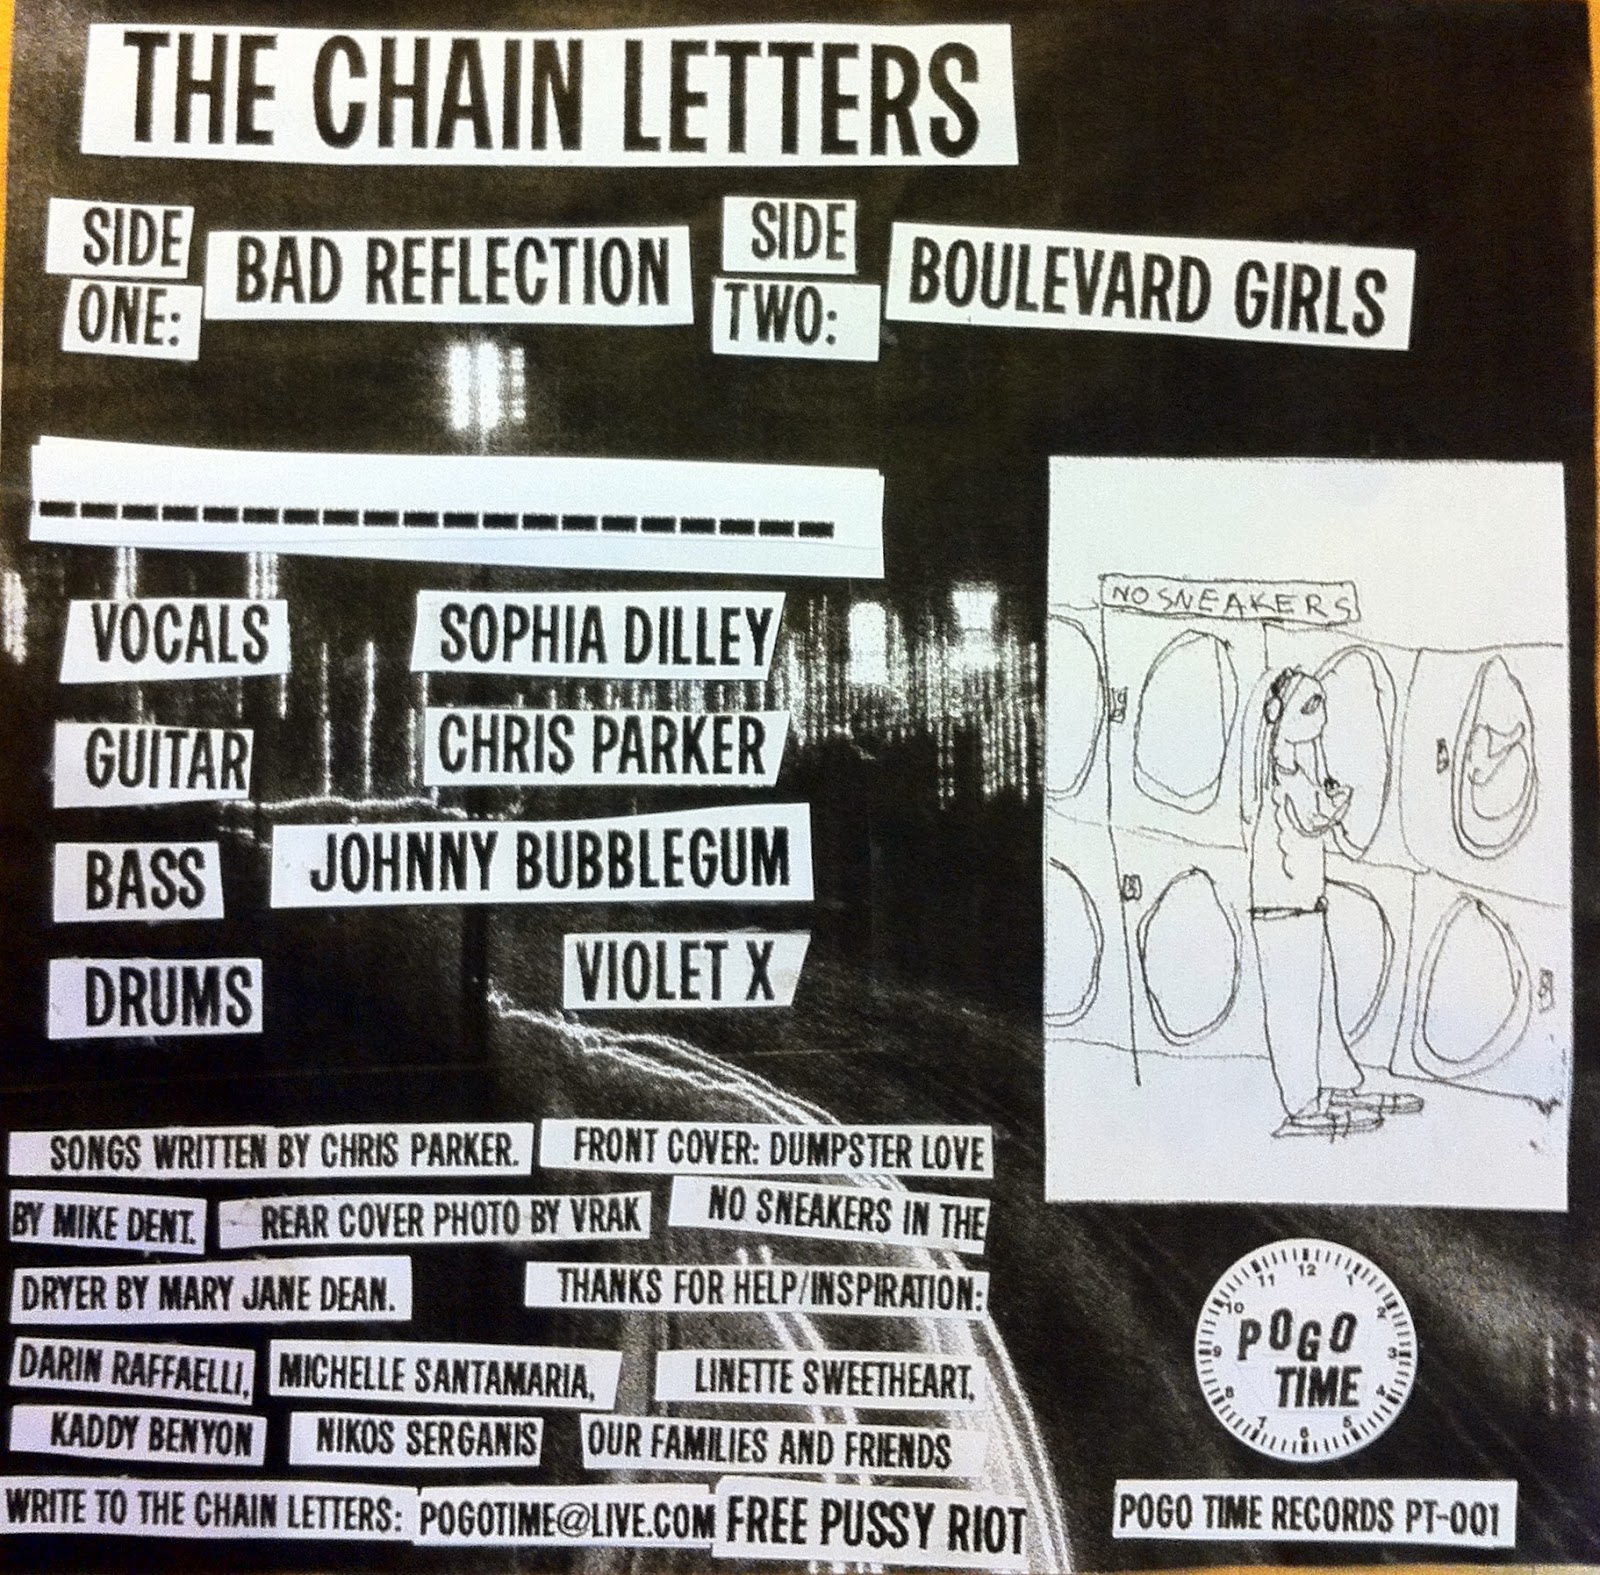 THE CHAIN LETTERS
SIDE ONE: BAD REFLECTION
SIDE TWO: BOULEVARD GIRLS
--------------------
VOCALS SOPHIA DILLEY
GUITAR CHRIS PARKER
BASS JOHNNY BUBBLEGUM
DRUMS VIOLET X
NO SNEAKERS
SONGS WRITTEN BY CHRIS PARKER. FRONT COVER: DUMPSTER LOVE
BY MIKE DENT. REAR COVER PHOTO BY VRAK NO SNEAKERS IN THE
DRYER BY MARY JANE DEAN. THANKS FOR HELP/INSPIRATION:
DARIN RAFFAELLI, MICHELLE SANTAMARIA, LINETTE SWEETHEART,
KADDY BENYON NIKOS SERGANIS OUR FAMILIES AND FRIENDS
WRITE TO THE CHAIN LETTERS: POGOTIME@LIVE.COM FREE PUSSY RIOT
POGO
TIME
POGO TIME RECORDS PT-001